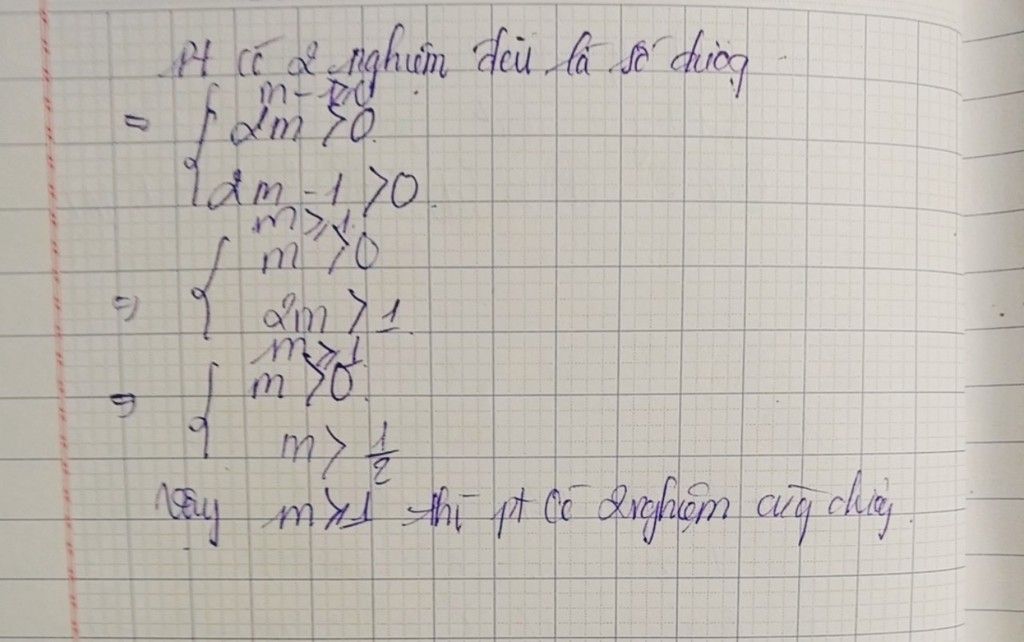 Pt có 2 nghiệm đều là số dương
2m > 0
⇒ {
2m - 1 > 0
m ≥ 1
m > 0
⇒ {
2m > 1
m ≥ 1
m > 0
⇒ {
m > 1/2
Vậy m ≥ 1 thì pt có 2 nghiệm cùng dương.